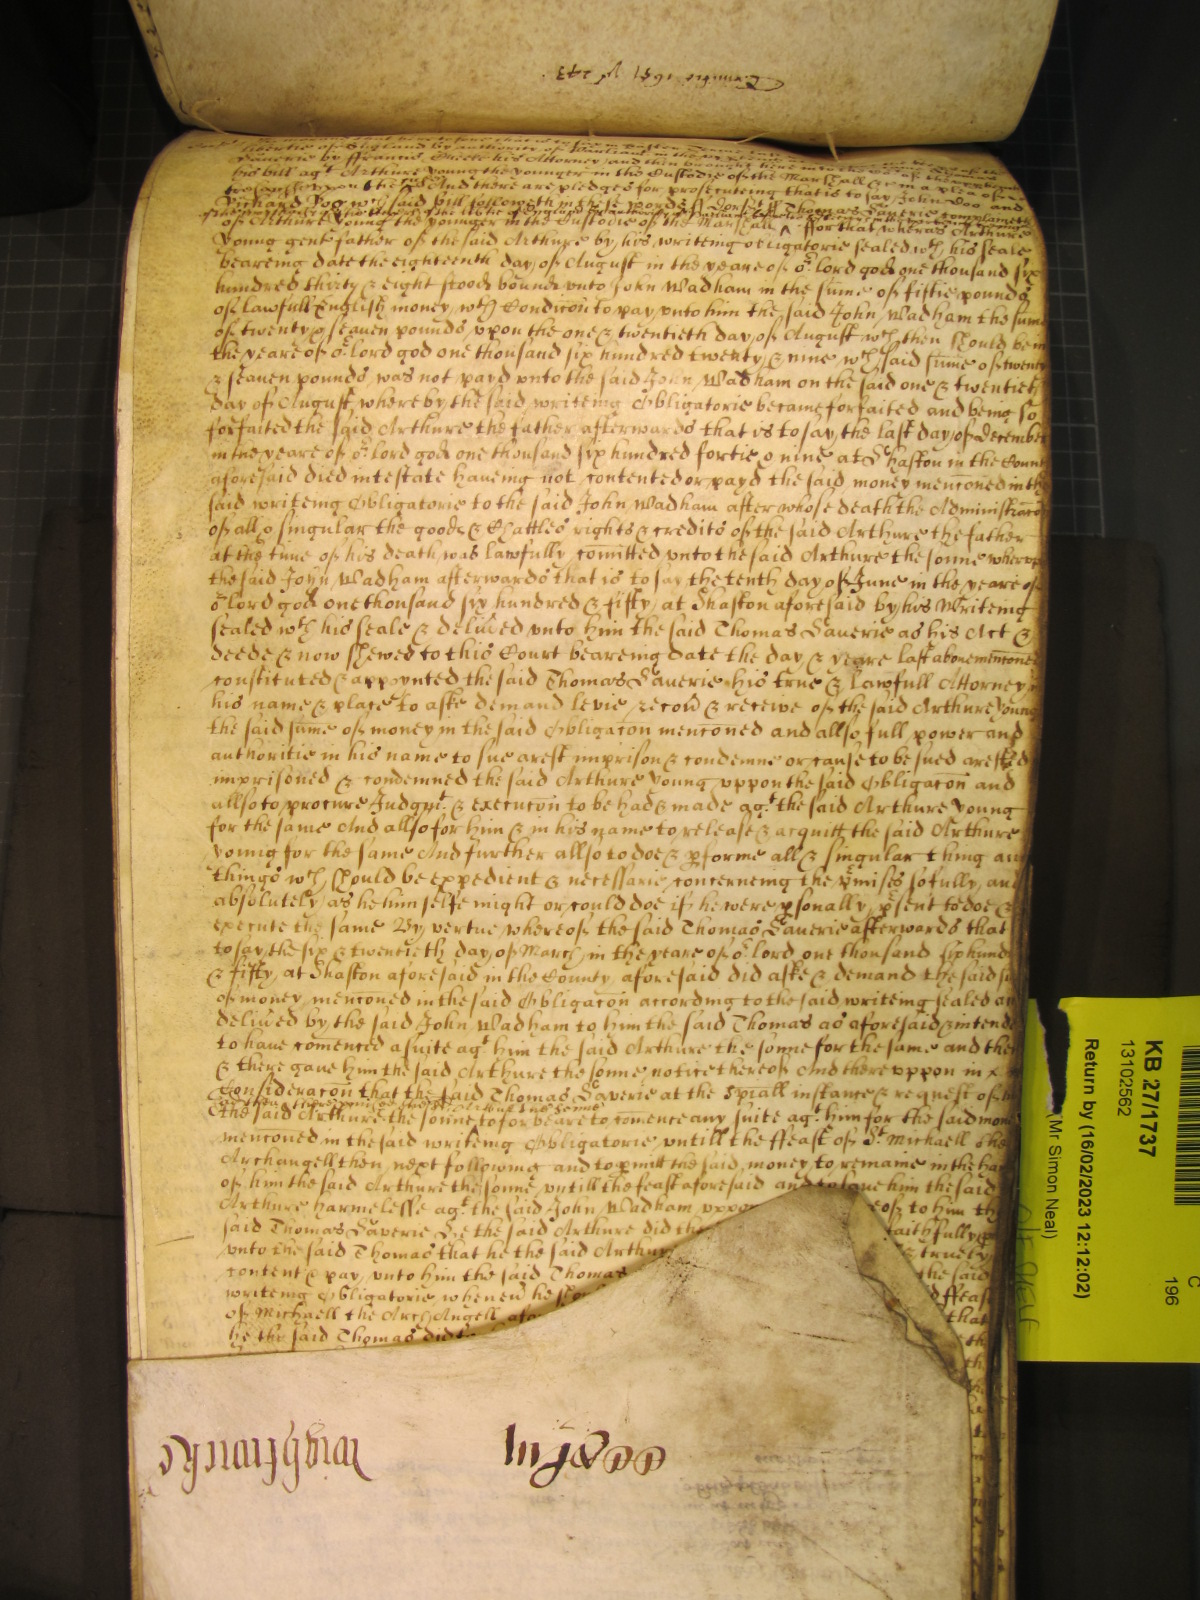 Trinitie 1651 243
libertie of England by authoritie of Parliament in the
Saverie by ffrancis his Attorney and then brought here into the
his bill agt Arthure Young the younger in the Custodie of the Marshall &c in a plea of
And there are pledges for prosecuteing that is to say John Doo and
Richard Roo wch said bill followeth in these words Dorsett Thomas Saverie complaineth
of Arthure Young the younger in the Custodie of the Marshall ffor that wheras Arthure
Young gent father of the said Arthure by his writeing obligatorie sealed wth his seale
beareing date the eighteenth day of August in the yeare of or lord god one thousand six
hundred thirty & eight stood bound unto John Wadham in the sume of fiftie pounds
of lawfull English money wth Condicon to pay unto him the said John Wadham the sume
of twenty & seauen pounds upon the one & twentieth day of August wch then should be in
the yeare of or lord god one thousand six hundred twenty & nine wch said sume of twenty
& seauen pounds was not payd unto the said John Wadham on the said one & twentieth
day of August whereby the said writeing Obligatorie became forfaited and being so
forfaited the said Arthure the father afterwards that is to say the last day of December
in the yeare of or lord god one thousand six hundred fortie & nine at Shaston in the County
aforesaid died intestate haueing not contented or payd the said money menconed in the
said writeing Obligatorie to the said John Wadham after whose death the Administracon
of all & singular the goods & Chattles rights & credits of the said Arthure the father
at the time of his death was lawfully comitted unto the said Arthure the sonne wherupon
the said John Wadham afterwards that is to say the tenth day of June in the yeare of
or lord god one thousand six hundred & fifty at Shaston aforesaid by his Writeing
sealed wth his seale & delived unto him the said Thomas Saverie as his Act &
deede & now shewed to this Court beareing date the day & yeare last abouemenconed
constituted & appoynted the said Thomas Saverie his true & lawfull Attorney in
his name & place to aske demand levie recov & receive of the said Arthure Young
the said sume of money in the said Obligacon menconed and allso full power and
authoritie in his name to sue arest imprison & condemne or cause to be sued arested
imprisoned & condemned the said Arthure Young uppon the said Obligacon and
allso to procure Judgmt & execucon to be had & made agt the said Arthure Young
for the same And allso for him & in his name to release & acquitt the said Arthure
Young for the same And further allso to doe & pforme all & singular thing and
things wch should be expedient & necessarie concerneing the pmises so fully and
absolutely as he him selfe might or could doe if he were psonally psent to doe &
execute the same By vertue whereof the said Thomas Saverie afterwards that is
to say the six & twentieth day of March in the yeare of or lord one thousand six hundred
& fifty at Shaston aforesaid in the County aforesaid did aske & demand the said sume
of money menconed in the said Obligacon according to the said writeing sealed and
delived by the said John Wadham to him the said Thomas as aforesaid & intended
to haue comenced a suite agt him the said Arthure the sonne for the same and then
& there gaue him the said Arthure the sonne notice thereof And thereuppon in
Consideracon that the said Thomas Saverie at the spiall instance & request of him
the said Arthure the sonne to forbeare to comence any suite agt him for the said money
menconed in the said writeing Obligatorie untill the ffeast of St Michaell the
Archangell then next following and to pmitt the said money to remaine in the hands
of him the said Arthure the sonne untill the feast aforesaid and to saue him the said
Arthure harmelesse agt the said John Wadham uppon to him the
said Thomas Saverie he the said Arthure did then faithfully
unto the said Thomas that he the said Arthure & truely
content & pay unto him the said Thomas the said
writeing Obligatorie when he ffeast
of Michaell the ArchAngell afor that
he the said Thomas did
KB 27/1737
13102562
Return by (16/02/2023 12:12:02)
(Mr Simon Neal)
C
196